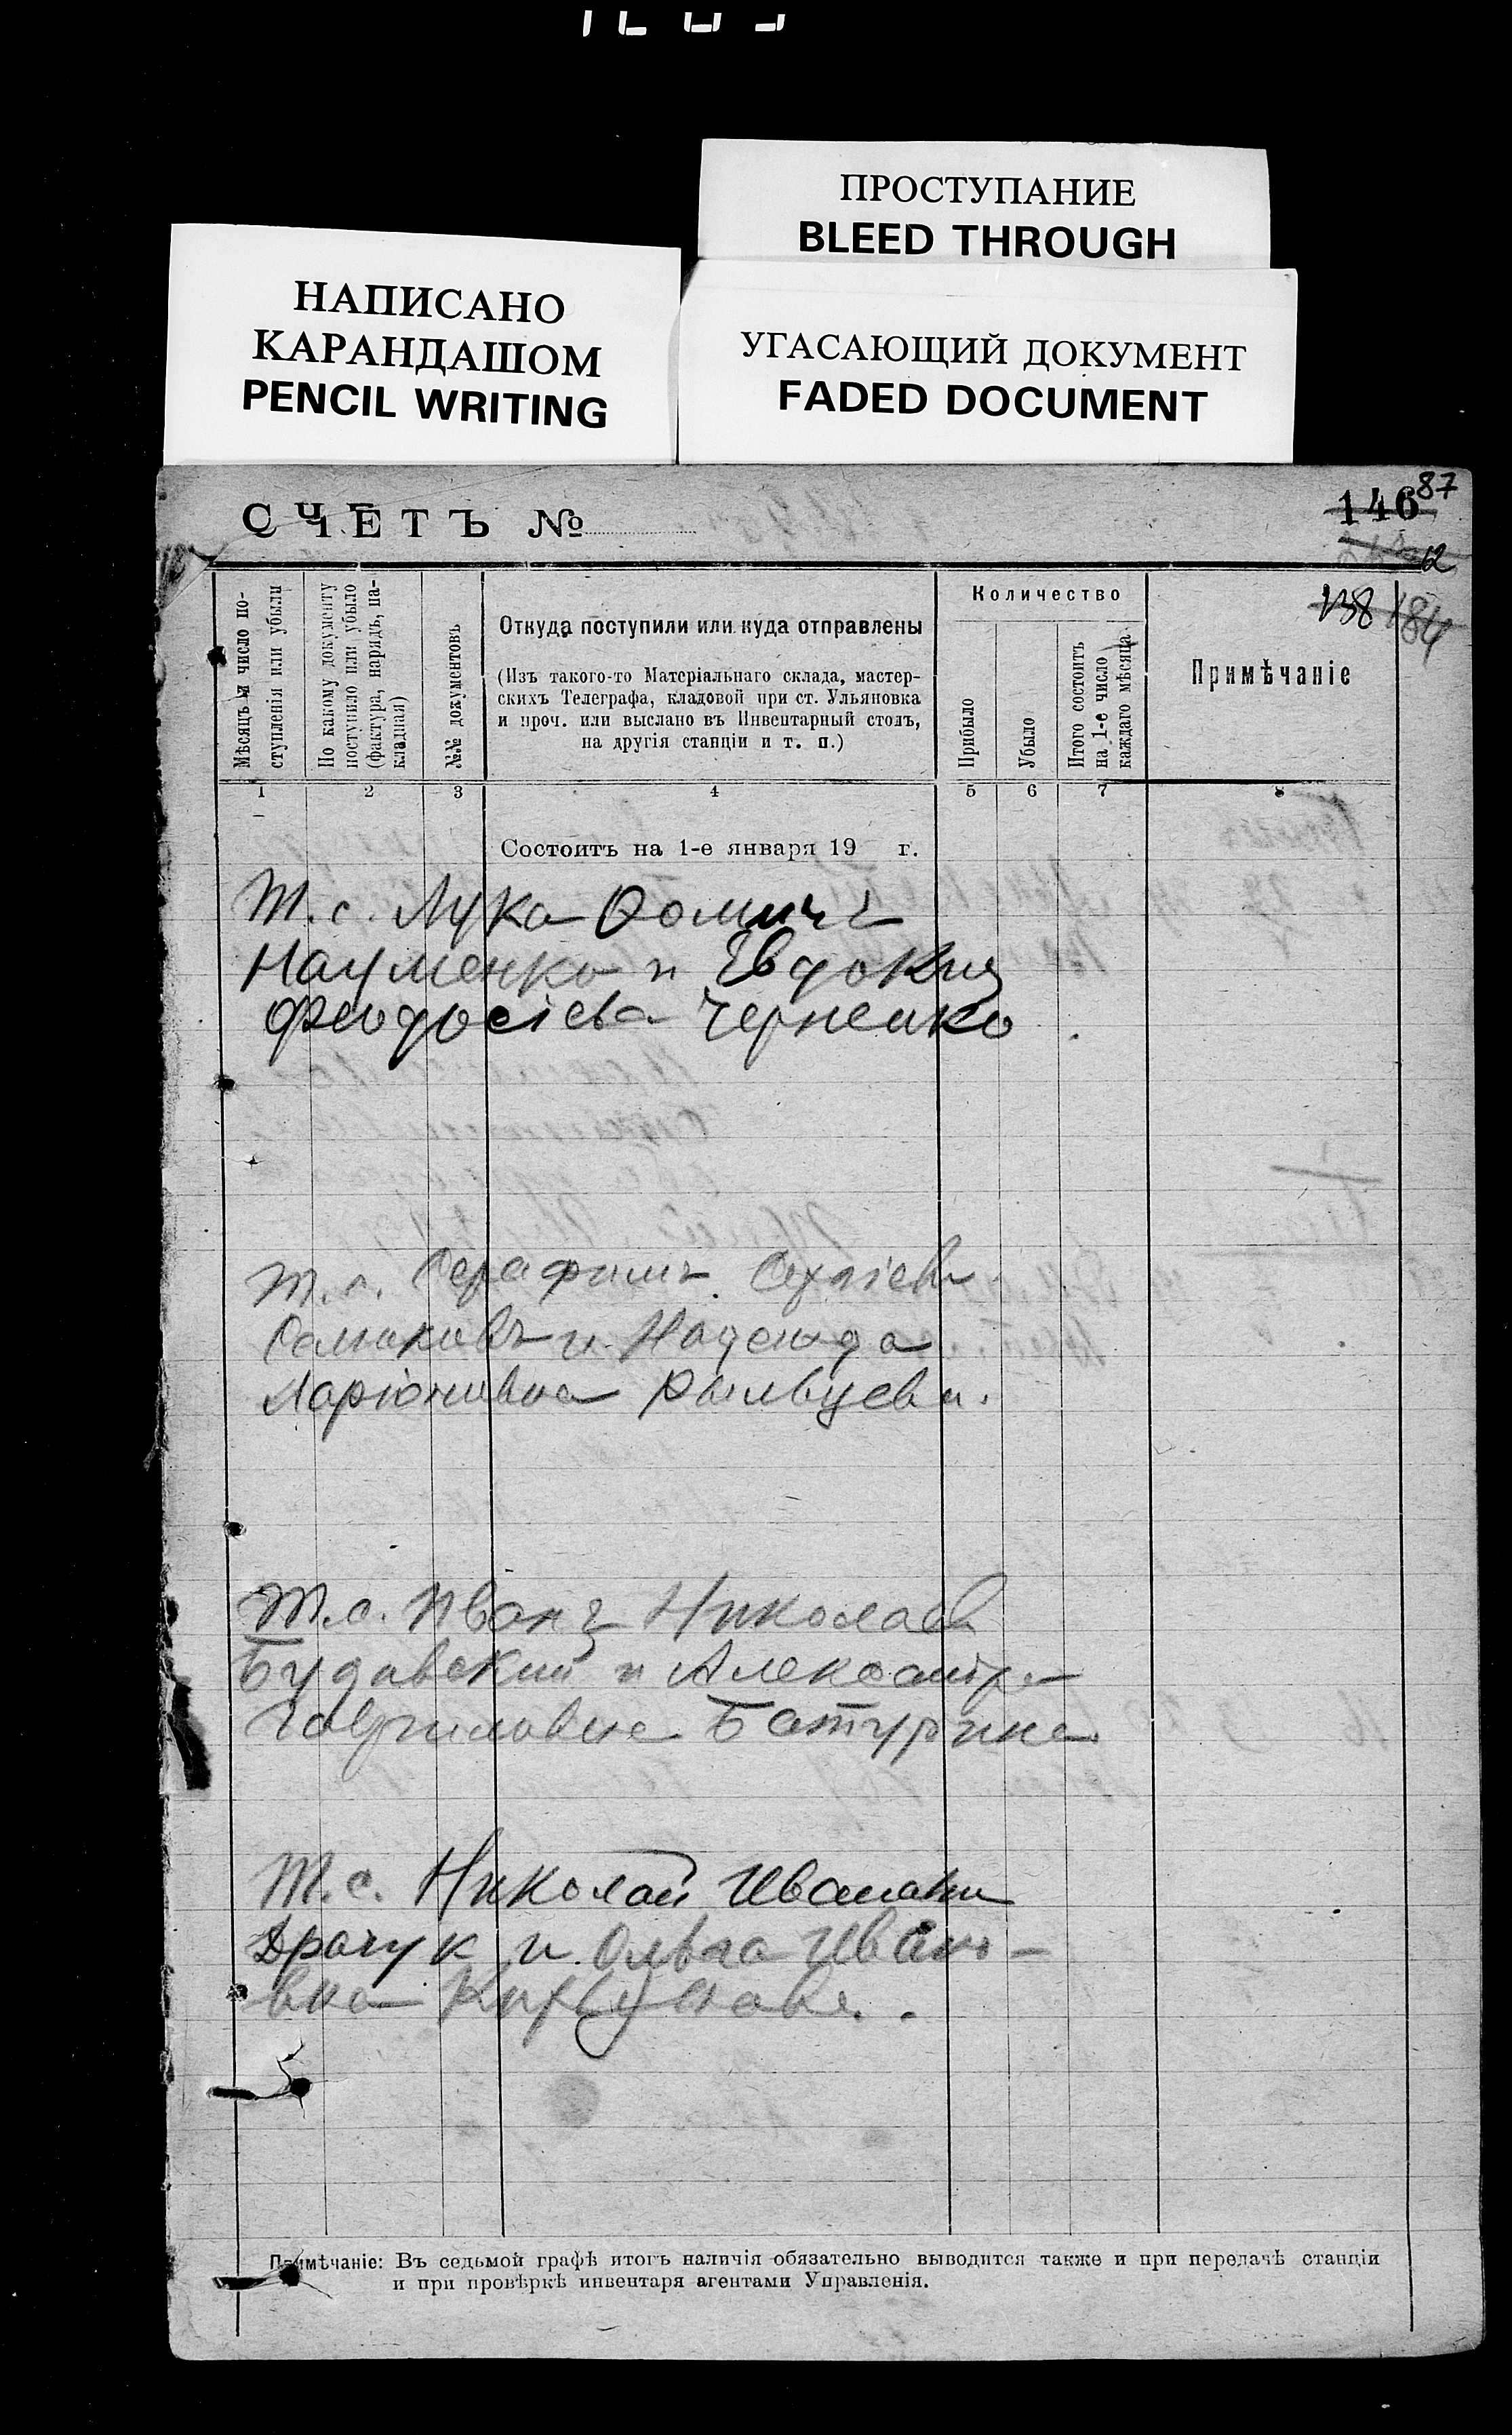 ПРОСТУПАНИЕ
BLEED THROUGH
НАПИСАНО
КАРАНДАШОМ
PENCIL WRITING
УГАСАЮЩИЙ ДОКУМЕНТ
FADED DOCUMENT
СЧЕТЪ №
146 87
12
138 184
Мѣсяцъ и число по-
ступленія или убыли
По какому документу
поступило или убыло
(фактура, нарядъ, на-
кладная)
№№ документовъ
Откуда поступили или куда отправлены
(Изъ такого-то Матеріальнаго склада, мастер-
скихъ Телеграфа, кладовой при ст. Ульяновка
и проч. или выслано въ Инвентарный столъ,
на другія станціи и т. п.)
Количество
Прибыло
Убыло
Итого состоитъ
на 1-е число
каждаго мѣсяца
Примѣчаніе
1 2 3 4 5 6 7 8
Состоитъ на 1-е января 19 г.
Т. с. Лука Ѳомичъ
Науменко и Евдокия
Феодосіева Черненко
Т. с. Серафимъ Сергіевъ
Самаковъ и Надежда
Ларіоновна
Т. с. Иванъ Николаев
Будавский и Александра
Гавриловна Батурина
Т. с. Николай Иванови
Драчук и Ольга Ивано-
вна
Примѣчаніе: Въ седьмой графѣ итогъ наличія обязательно выводится также и при передачѣ станціи
и при провѣркѣ инвентаря агентами Управленія.